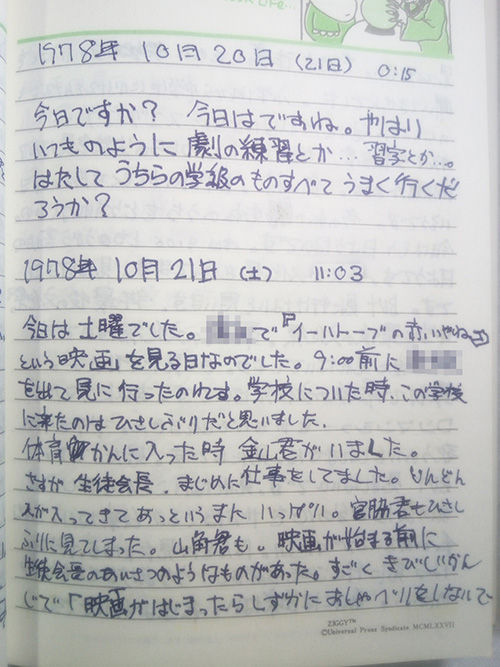 1978年 10月 20日 (21日) 0:15
今日ですか? 今日はですね。やはり
いつものように 劇の練習とか… 習字とか…。
はたして うちらの学級のものすべて うまく行くだ
ろうか?
1978年 10月 21日 (土) 11:03
今日は 土曜でした。 で『イーハトーブの赤いやね』
という映画』を見る日なのでした。9:00前に
を出て見に行ったのれす。学校についた時、この学校
に来たのはひさしぶりだと思いました.
体育かんに入った時 金山君がいました。
さすが 生徒会長、まじめに仕事をしてました。どんどん
人が入ってきてあっというまに いっぱい。宮脇君もひさし
ぶりに見てしまった。山角君も。映画が始まる前に
生徒会長のあいさつのようなものがあった。すごく きびしいかん
じで「映画がはじまったらしずかにおしゃべりをしないで
ZIGGY™
©Universal Press Syndicate MCMLXXVII